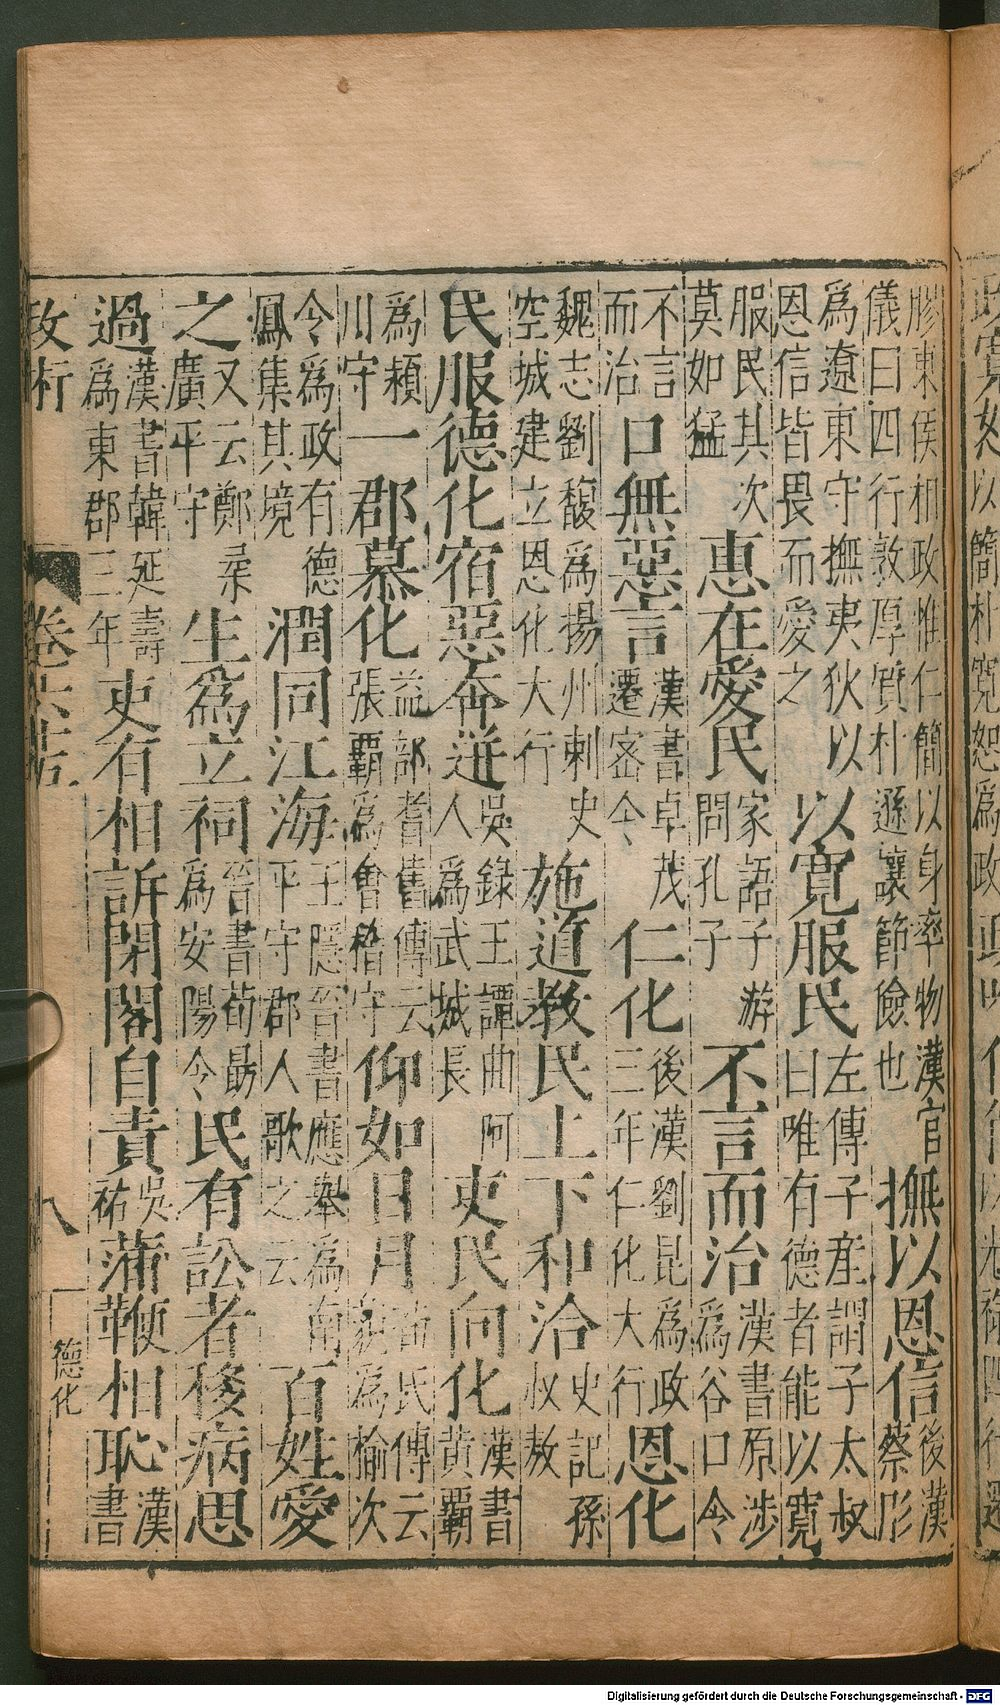 膠東侯相政惟仁簡以身率物漢官
儀曰四行敦厚質朴遜讓節儉也
撫以恩信
後漢蔡肜
為遼東守撫夷狄以
恩信皆畏而愛之
以寬服民
左傳子產謂子太叔
曰唯有德者能以寬
服民其次
莫如猛
惠在愛民
家語子游
問孔子
不言而治
漢書原涉
為谷口令
不言
而治
口無惡言
漢書卓茂
遷密令
仁化
後漢劉昆為政
三年仁化大行
恩化
魏志劉馥為揚州刺史
空城建立恩化大行
施道教民上下和洽
史記孫
叔敖
民服德化宿惡奔迸
吳錄王譚曲阿
人為武城長
吏民向化
漢書
黃霸
為潁
川守
一郡慕化
益部耆舊傳云
張霸為會稽守
仰如日月
苗氏傳云
貌為榆次
令為政有德
鳳集其境
潤同江海
王隱晉書應舉為南
平守郡人歌之云
百姓愛
之
又云鄭柔
廣平守
生為立祠
晉書荀勗
為安陽令
民有訟者後病思
過
漢書韓延壽
為東郡三年
吏有相訴閉閣自責
吳祐
蒲鞭相恥
漢書
政術
卷六十五
八
德化
政寬
以簡朴寬恕為政
Digitalisierung gefördert durch die Deutsche Forschungsgemeinschaft - DFG